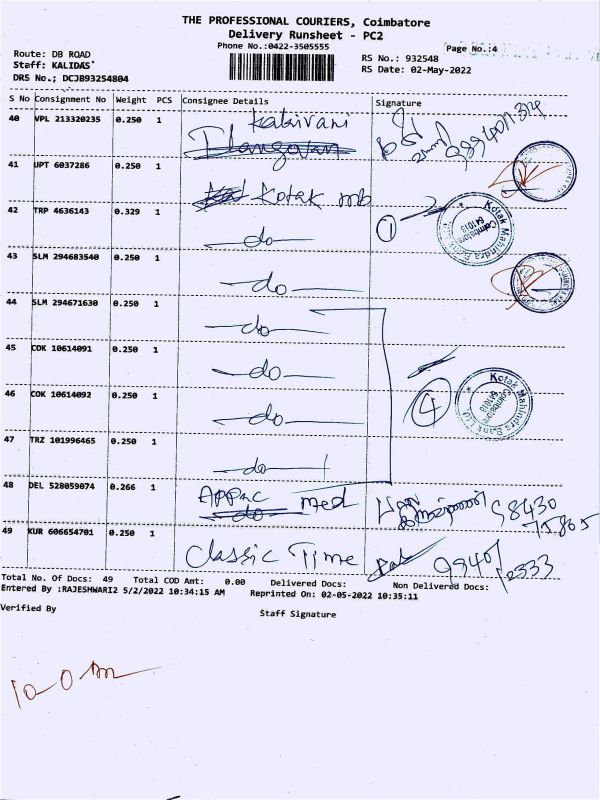 THE PROFESSIONAL COURIERS, Coimbatore
Delivery Runsheet - PC2
Phone No.:0422-3505555
Page No.:4
Route: DB ROAD
Staff: KALIDAS
DRS No.; DCJB93254804
RS No.: 932548
RS Date: 02-May-2022
S No Consignment No Weight PCS Consignee Details Signature
40 VPL 213320235 0.250 1 Kalaivani
41 UPT 6037286 0.250 1 Kotak mb
42 TRP 4636143 0.329 1 do
1
Kotak Mahindra Bank
Coimbatore
641018
43 SLM 294683540 0.250 1 do
44 SLM 294671630 0.250 1 do
45 COK 10614091 0.250 1 do
46 COK 10614092 0.250 1 do
4
Kotak Mahindra Bank Ltd
Coimbatore
641018
47 TRZ 101996465 0.250 1 do
48 DEL 528059074 0.266 1 med 98430
75865
49 KUR 606654701 0.250 1 Classic Time
Total No. Of Docs: 49 Total COD Amt: 0.00 Delivered Docs: Non Delivered Docs:
Entered By :RAJESHWARI2 5/2/2022 10:34:15 AM Reprinted On: 02-05-2022 10:35:11
Verified By
Staff Signature